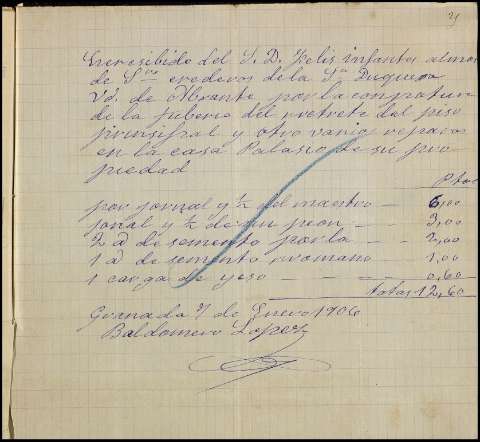 He recibido del S. D. Felis infantes almas
de S.res erederos de la S.ra Duquesa
Vd. de Abrante por la conpostura
de la tuberia del retrete del piso
prinsipal y otro varios reparos
en la casa Palasio de su pro
piedad
Ptas
por jornal y ½ del maestro — 6,00
jonal y ½ de su peon — 3,00
2 @ de semento por la — 2,00
1 @ de semento rromano — 1,00
1 carga de yeso — 0,60
totas 12,60
Granada 7 de Enero 1906
Baldomero Lopez